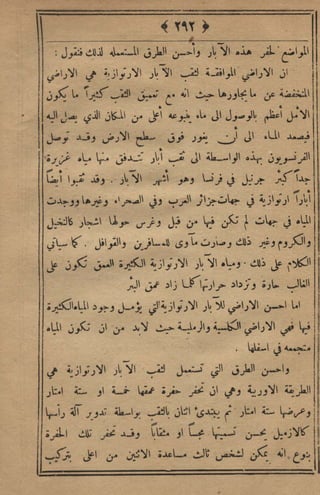 ﴿ ٢٩٢ ﴾
المواضع لحفر هذه الآبار وأحسن الطرق المستعملة لذلك فنقول :
ان الاراضي الموافقة لثقب الآبار الارتوازية هي الاراضي
المنخفضة عن ما يجاورها حيث انه مع تعميق الثقب كثيراً ما يكون
الأمل أعظم بالوصول الى ماء ينبوعه أعلى من المكان الذي يصل اليه
فيصعد الماء الى أن يفور فوق سطح الارض وقد توصل
الفرنسويون بهذه الواسطة الى ثقب أبار تتدفق منها مياه غزيرة
جداً كبئر جرنيل في فرنسا وهو أشهر الآبار . وقد ثقبوا أيضاً
أباراً ارتوازية في جهات جزائر الغرب وفي الصحراء وغيرها ووجدت
المياه في جهات لم تكن فيها من قبل وغرس حولها اشجار كالنخيل
والكروم وغير ذلك وصارت مأوى للمسافرين والقوافل . كما سيأتي
الكلام على ذلك . ومياه الآبار الارتوازية الكثيرة العمق تكون على
الغالب حارة وتزداد حرارتها كلما زاد عمق البئر
اما احسن الاراضي للآبار الارتوازية التي يؤمل وجود المياه الكثيرة
فيها فهي الاراضي الكلسية والرملية حيث لابد من ان تكون المياه
متجمعه في اسفلها .
واحسن الطرق التي تستعمل لثقب الآبار الارتوازية هي
الطريقة الاوربية وهي ان تحفر حفرة عمقها خمسة او ستة امتار
وعرضها ستة امتار ثم يبتدئ اثنان بالثقب بواسطة تدوير آلة رأسها
كالازميل يحسن تسميتها مجساً او مثقاباً وقد تحفر تلك الحفرة
بنوع انه يمكن لشخص ثالث مساعدة الاثنين من اعلى بتركيب